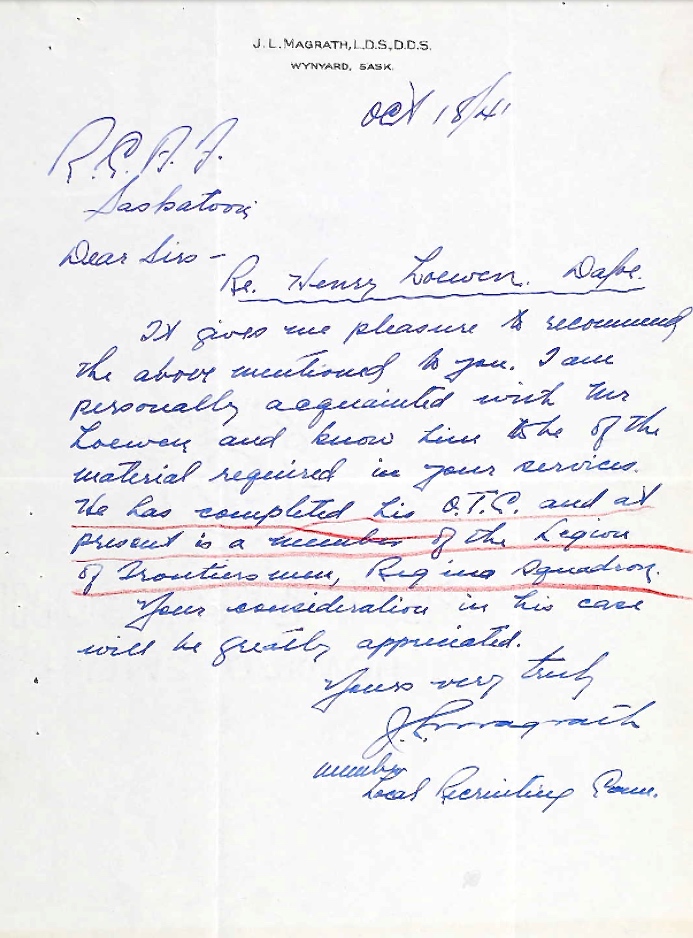 J. L. MAGRATH, L.D.S., D.D.S.
WYNYARD, SASK.
Oct 18/41
R.C.A.F.
Saskatoon
Dear Sirs –
Re. Henry Loewen. Dafoe.
It gives me pleasure to recommend
the above mentioned to you. I am
personally acquainted with Mr
Loewen and know him to be of the
material required in your services.
He has completed his O.T.C. and at
present is a member of the Legion
of Frontiersmen, Regina Squadron.
Your consideration in his case
will be greatly appreciated.
Yours very truly
J. L. Magrath
member
Local Recruiting Comm.